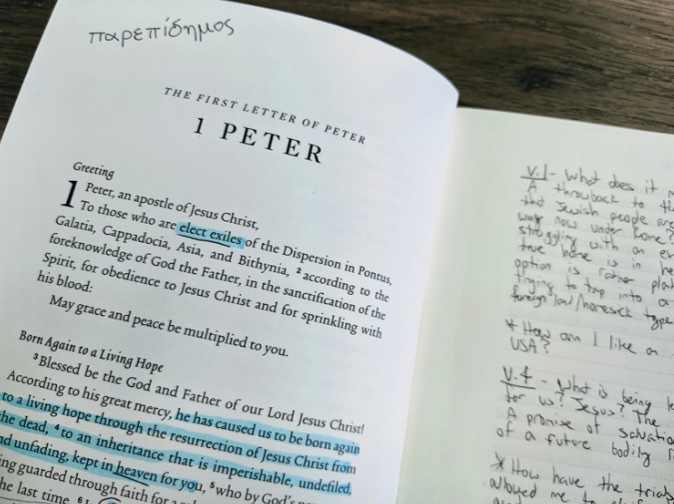 παρεπίδημος
THE FIRST LETTER OF PETER
1 PETER
Greeting
1 Peter, an apostle of Jesus Christ,
To those who are elect exiles of the Dispersion in Pontus,
Galatia, Cappadocia, Asia, and Bithynia, 2 according to the
foreknowledge of God the Father, in the sanctification of the
Spirit, for obedience to Jesus Christ and for sprinkling with
his blood:
May grace and peace be multiplied to you.
Born Again to a Living Hope
3 Blessed be the God and Father of our Lord Jesus Christ!
According to his great mercy, he has caused us to be born again
to a living hope through the resurrection of Jesus Christ from
the dead, 4 to an inheritance that is imperishable, undefiled,
and unfading, kept in heaven for you, 5 who by God's
being guarded through faith for a
the last time. 6
v.1 - What does it
A throwback to
that Jewish people are
way now under Rome?
struggling with an
true home is in
option is rather
trying to tap into a
foreign land/homesick type
* How am I like an
USA?
v.4 - What is being
for us? Jesus? The
A promise of salvation
of a future bodily
* How have the trials
allowed me to